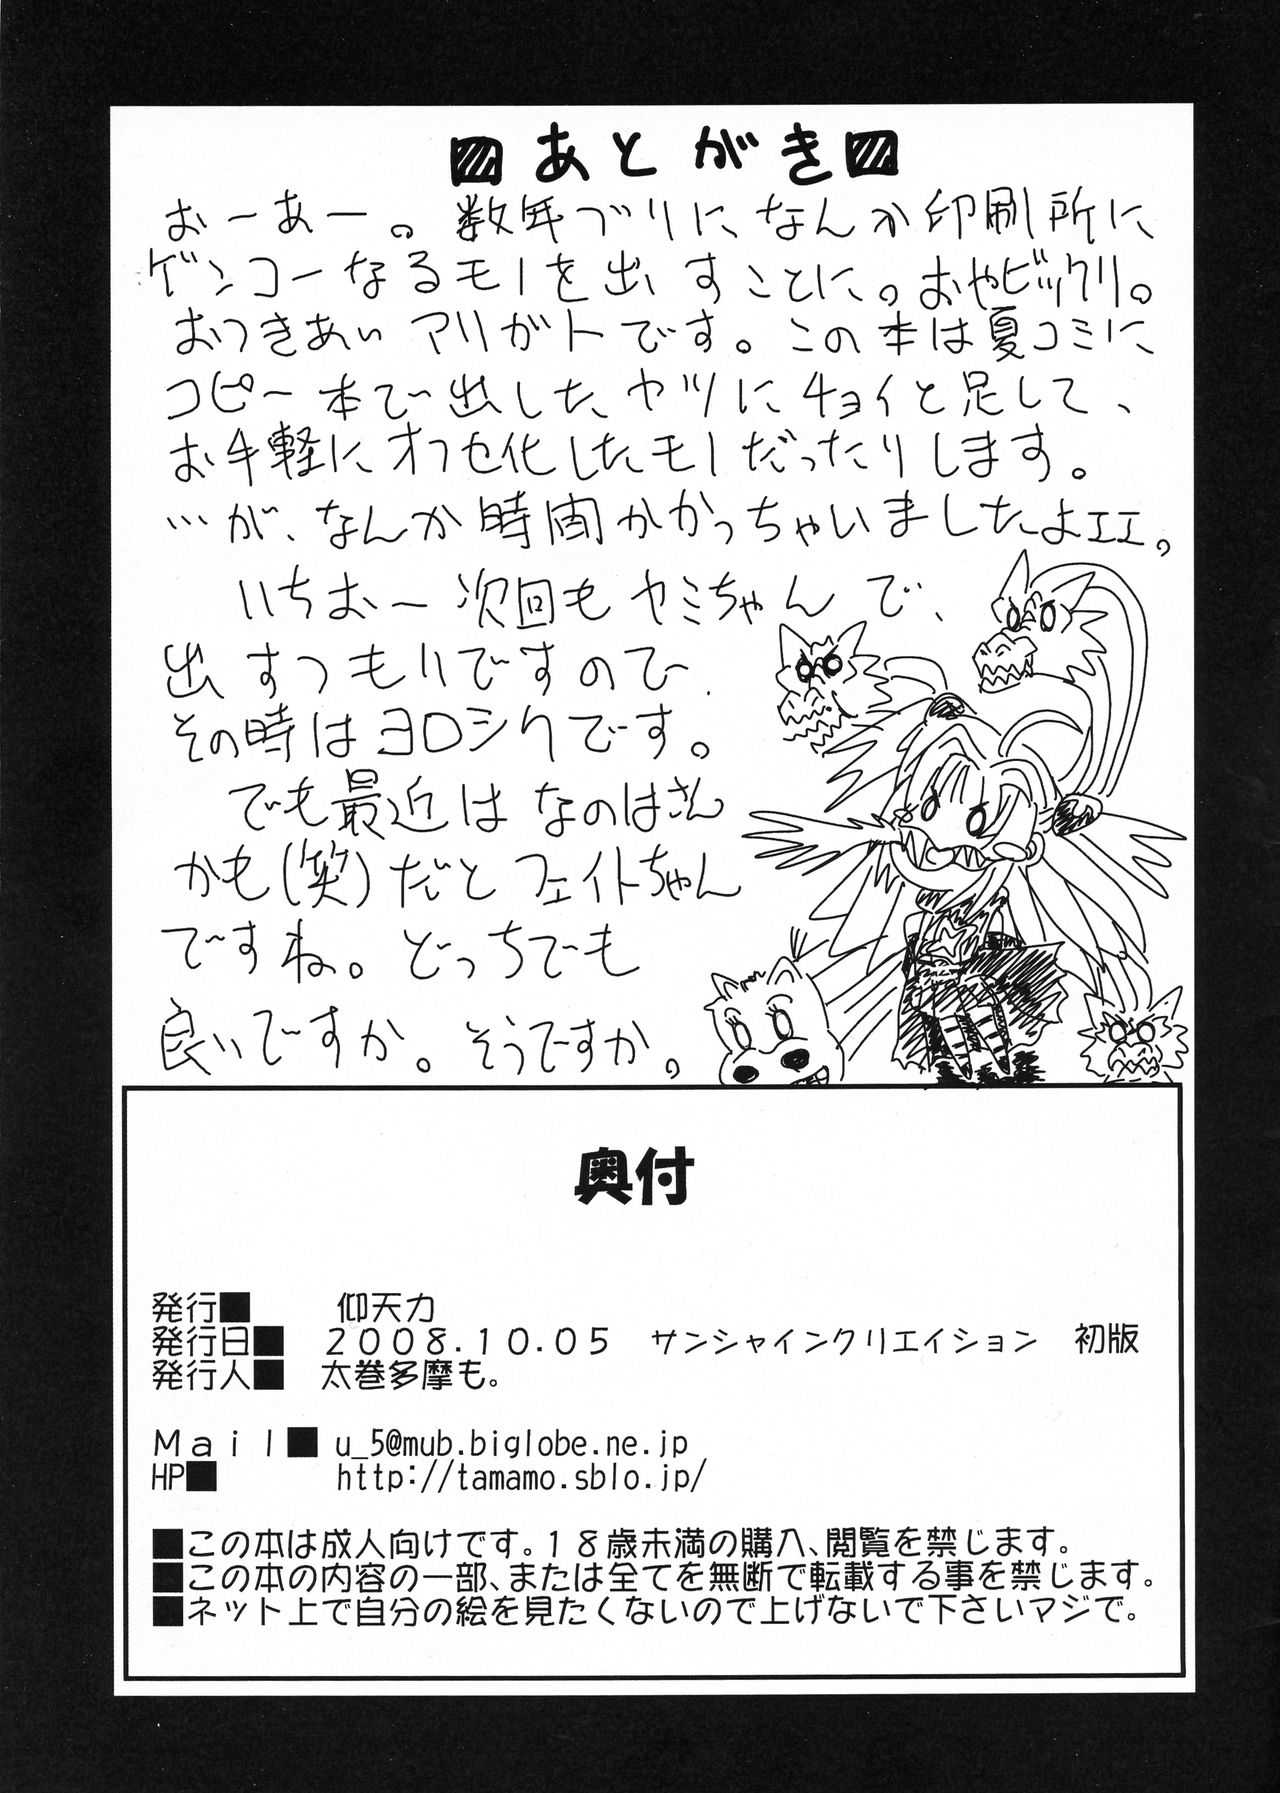 あとがき
おーあー。数年ブリに、なんか印刷所に
ゲンコーなるモノを出すことに。おやビックリ。
おつきあい アリガトです。この本は夏コミに
コピー本で出した、ヤツにチョイと足して、
お手軽にオフセ化したモノだったりします。
…が、なんか時間かかっちゃいましたよエエ。
いちおー次回もヤミちゃんで、
出すつもりですので、
その時はヨロシクです。
でも最近はなのはさん
かも(笑)だとフェイトちゃん
ですね。どっちでも
良いですか。そうですか。
奥付
発行■ 仰天力
発行日■ 2008.10.05 サンシャインクリエイション 初版
発行人■ 太巻多摩も。
Mail■ u_5@mub.biglobe.ne.jp
HP■ http://tamamo.sblo.jp/
■この本は成人向けです。18歳未満の購入、閲覧を禁じます。
■この本の内容の一部、または全てを無断で転載する事を禁じます。
■ネット上で自分の絵を見たくないので上げないで下さいマジで。